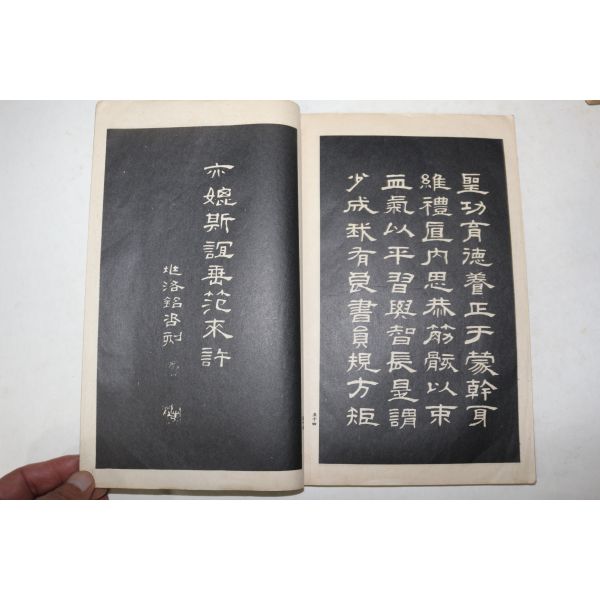 聖功育德養正于蒙幹身
維禮匪内思恭筋骸以束
血氣以平習與智長是謂
少成我有良書員規方矩
亦媲斯誼垂范來許
洛銘